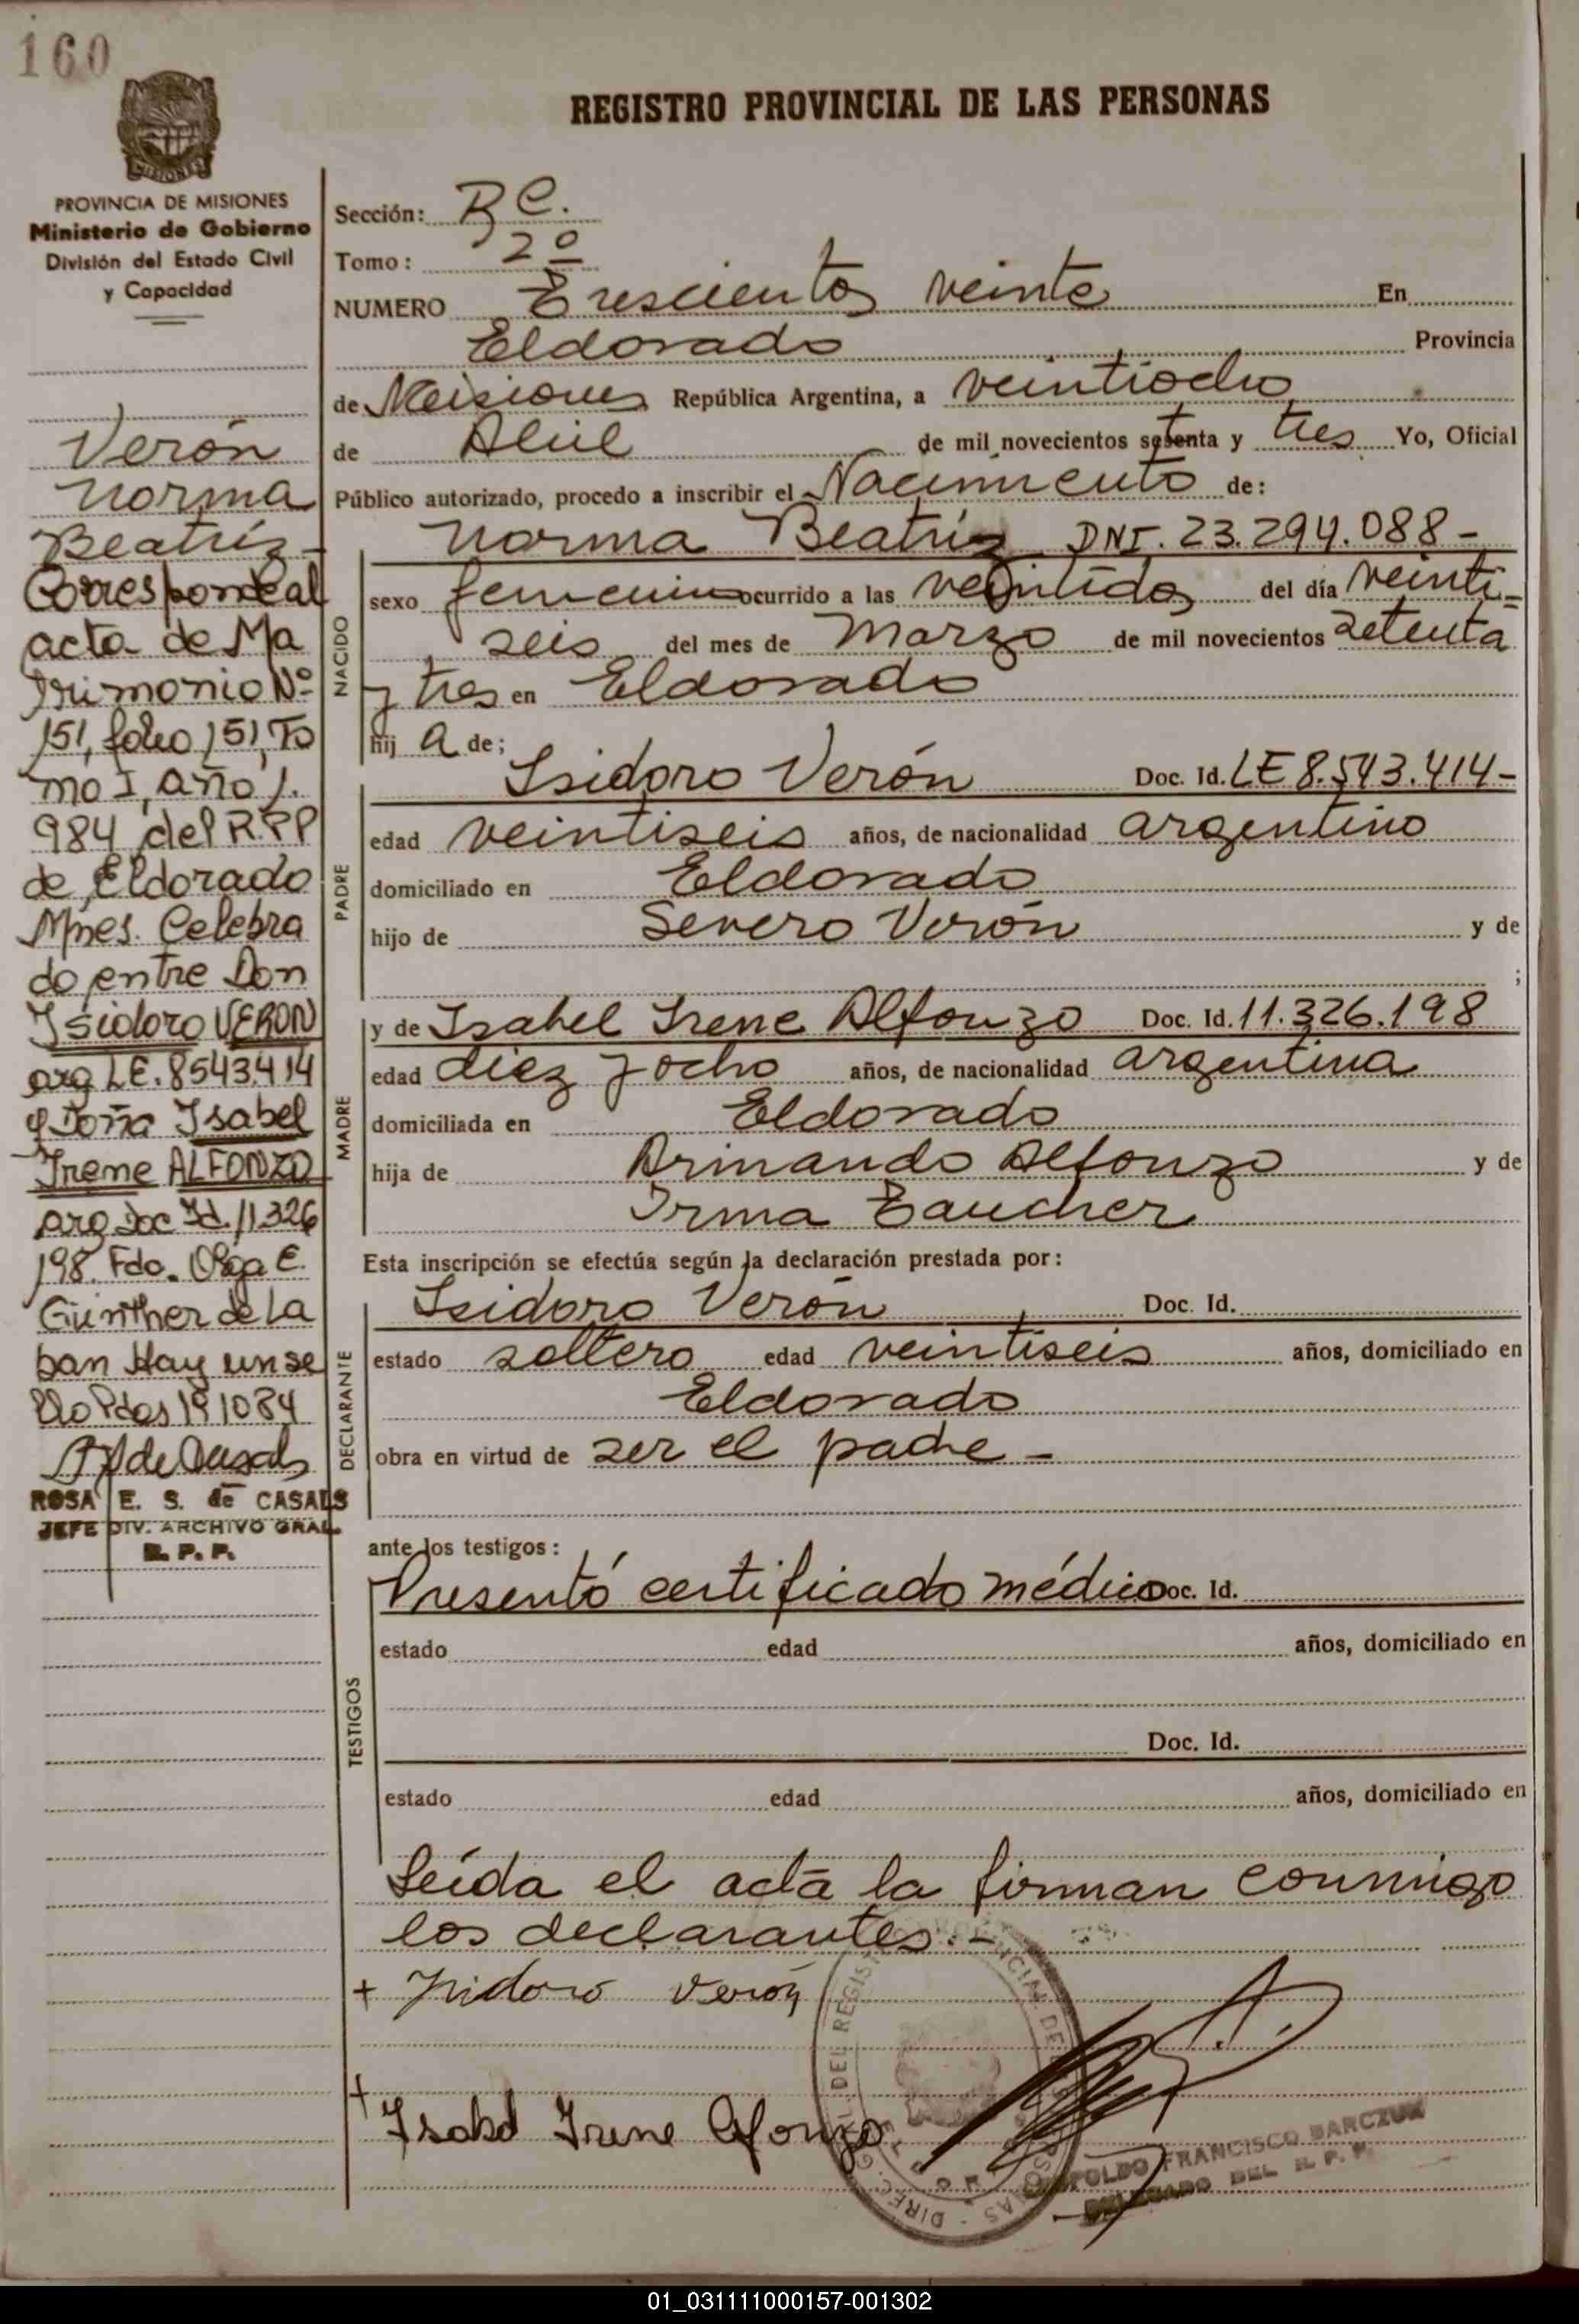 160
REGISTRO PROVINCIAL DE LAS PERSONAS
MISIONES
PROVINCIA DE MISIONES
Ministerio de Gobierno
División del Estado Civil
y Capacidad
Verón
Norma
Beatriz -
Corresponde al
acta de Ma
trimonio Nº
151, folio 151, To
mo I, año 1.
984 del R.P.P
de Eldorado
Mnes. Celebra
do entre Don
Isidoro VERON
arg LE. 8543.414
y Doña Isabel
Irene ALFONZO
arg Doc Id. 11326
198. Fdo. Olga E.
Günther de La
ban Hay un se
llo Pdas 19 10 84
ROSA E. S. de CASALS
JEFE DIV. ARCHIVO GRAL.
R. P. P.
Sección: B C.
Tomo: 2º
NUMERO Trescientos veinte En
Eldorado Provincia
de Misiones República Argentina, a veintiocho
de Abril de mil novecientos setenta y tres Yo, Oficial
Público autorizado, procedo a inscribir el Nacimiento de:
NACIDO
Norma Beatriz DNI. 23.294.088 -
sexo femenino ocurrido a las veintidos del día veinti=
seis del mes de Marzo de mil novecientos setenta
y tres en Eldorado
hij a de;
PADRE
Isidoro Verón Doc. Id. LE 8.543.414-
edad veintiseis años, de nacionalidad argentino
domiciliado en Eldorado
hijo de Severo Verón y de
;
MADRE
y de Isabel Irene Alfonzo Doc. Id. 11.326.198
edad diez y ocho años, de nacionalidad argentina
domiciliada en Eldorado
hija de Armando Alfonzo y de
Irma Taucher
Esta inscripción se efectúa según la declaración prestada por:
DECLARANTE
Isidoro Verón Doc. Id.
estado soltero edad veintiseis años, domiciliado en
Eldorado
obra en virtud de ser el padre -
ante los testigos:
TESTIGOS
Presentó certificado médico Doc. Id.
estado edad años, domiciliado en
Doc. Id.
estado edad años, domiciliado en
Leída el acta la firman conmigo
los declarantes.-
+ Isidoro Verón
+ Isabel Irene Alfonzo
FRANCISCO BARCZUK
DELEGADO DEL R. P. P.
01_031111000157-001302